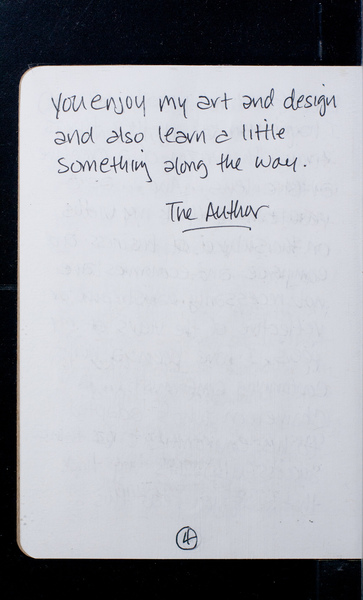 you enjoy my art and design
and also learn a little
something along the way.
The Author
4